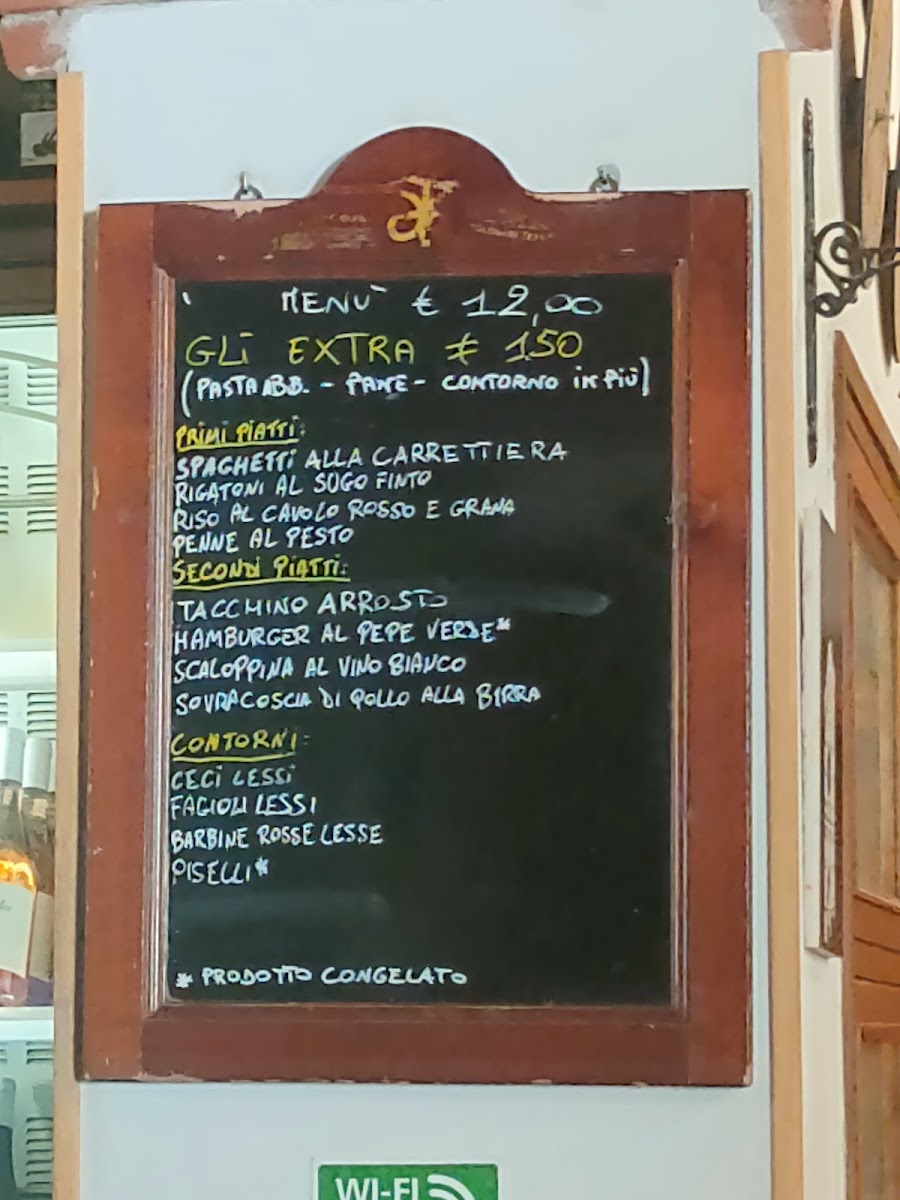 MENU' € 12,00
GLI EXTRA € 150
(PASTA ABB. - PANE - CONTORNO IN PIÙ)
PRIMI PIATTI:
SPAGHETTI ALLA CARRETTIERA
RIGATONI AL SUGO FINTO
RISO AL CAVOLO ROSSO E GRANA
PENNE AL PESTO
SECONDI PIATTI:
TACCHINO ARROSTO
HAMBURGER AL PEPE VERDE*
SCALOPPINA AL VINO BIANCO
SOVRACOSCIA DI POLLO ALLA BIRRA
CONTORNI:
CECI LESSI
FAGIOLI LESSI
BARBINE ROSSE LESSE
PISELLI*
* PRODOTTO CONGELATO
WI-FI